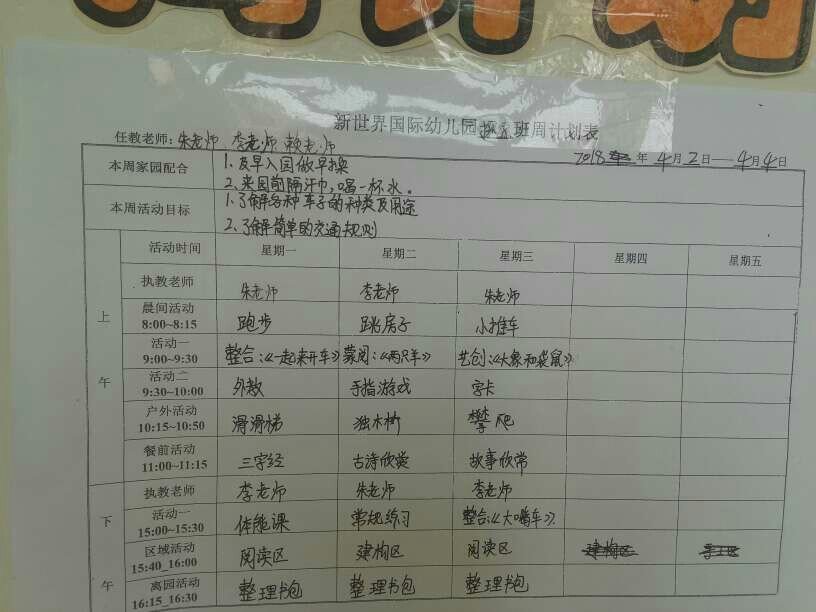 新世界国际幼儿园 班周计划表
任教老师：朱老师 李老师 赖老师
2018 年 4月2日——4月4日
本周家园配合 1、及早入园做早操
2、来园前隔汗巾，喝一杯水。
本周活动目标 1、了解各种车子的种类及用途
2、了解简单的交通规则
上午
活动时间 星期一 星期二 星期三 星期四 星期五
执教老师 朱老师 李老师 朱老师
晨间活动 8:00~8:15 跑步 跳房子 小推车
活动一 9:00~9:30 整合：《一起来开车》 蒙阅：《两只羊》 艺创：《大象和袋鼠》
活动二 9:30~10:00 外教 手指游戏 字卡
户外活动 10:15~10:50 滑滑梯 独木桥 攀爬
餐前活动 11:00~11:15 三字经 古诗欣赏 故事欣常
下午
执教老师 李老师 朱老师 李老师
活动一 15:00~15:30 体能课 常规练习 整合：《大嘴车》
区域活动 15:40_16:00 阅读区 建构区 阅读区 建构区 手工区
离园活动 16:15_16:30 整理书包 整理书包 整理书包